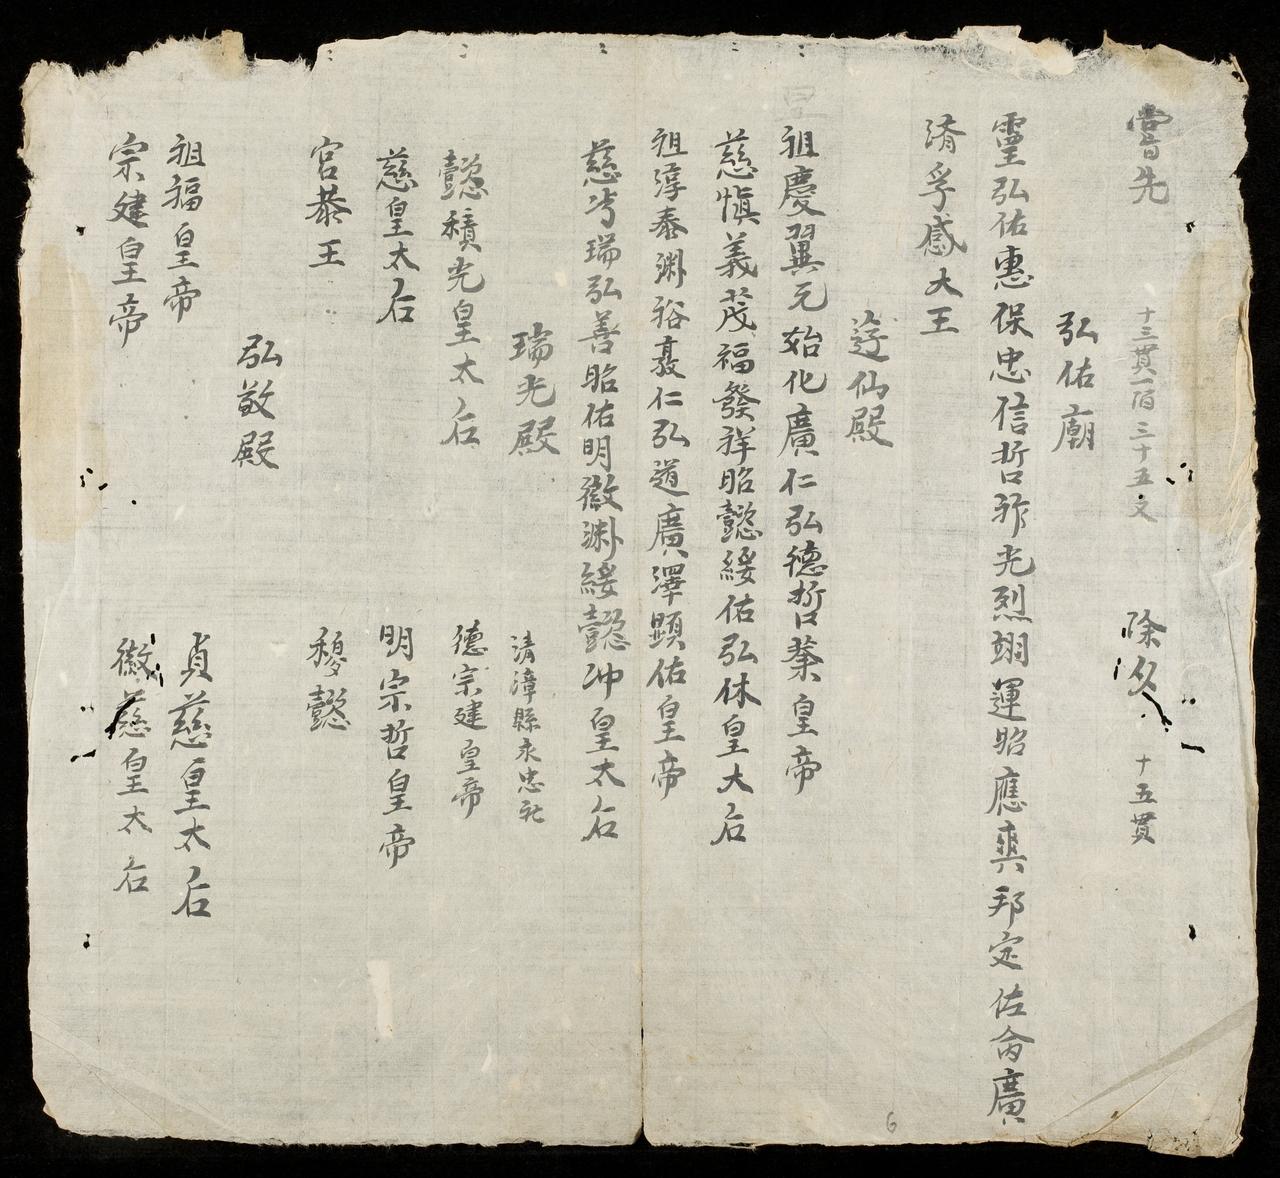 嘗先 十三貫一百三十五文 除夕 十五貫
弘佑廟
靈弘佑惠保忠信哲祚光烈翊運昭應興邦定佐侖廣
濟孚感大王
遊仙殿
祖慶翼元始化廣仁弘德哲 皇帝
慈愼義茂福發祥昭懿綏佑弘休皇大后
祖淳泰淵裕敦仁弘道廣澤顯佑皇帝
慈 瑞弘善昭佑明徽渊綏懿冲皇太后
瑞光殿 清漳縣永忠社
懿積光皇太后 德宗建皇帝
慈皇太后 明宗哲皇帝
宮恭王 穆懿
弘敬殿
祖福皇帝 貞慈皇太后
宗建皇帝 徽慈皇太后
6